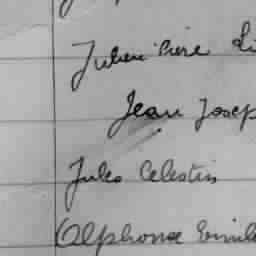 Julien Pierre
Jean Josep
Jules Celestin
Alphonse Emile